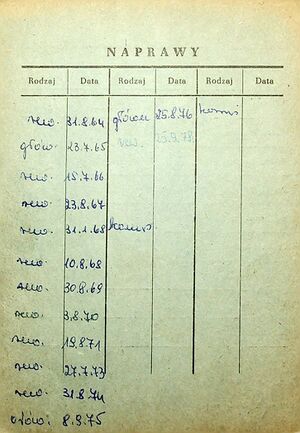 NAPRAWY
Rodzaj Data Rodzaj Data Rodzaj Data
rew. 31.8.64 główn 25.8.76
główn. 23.7.65 rew. 25.9.78
rew. 15.7.66
rew. 23.8.67
rew. 31.1.68
rew. 10.8.68
rew. 30.8.69
rew. 3.8.70
rew. 19.8.71
rew. 27.7.73
rew. 31.8.74
główn. 8.9.75